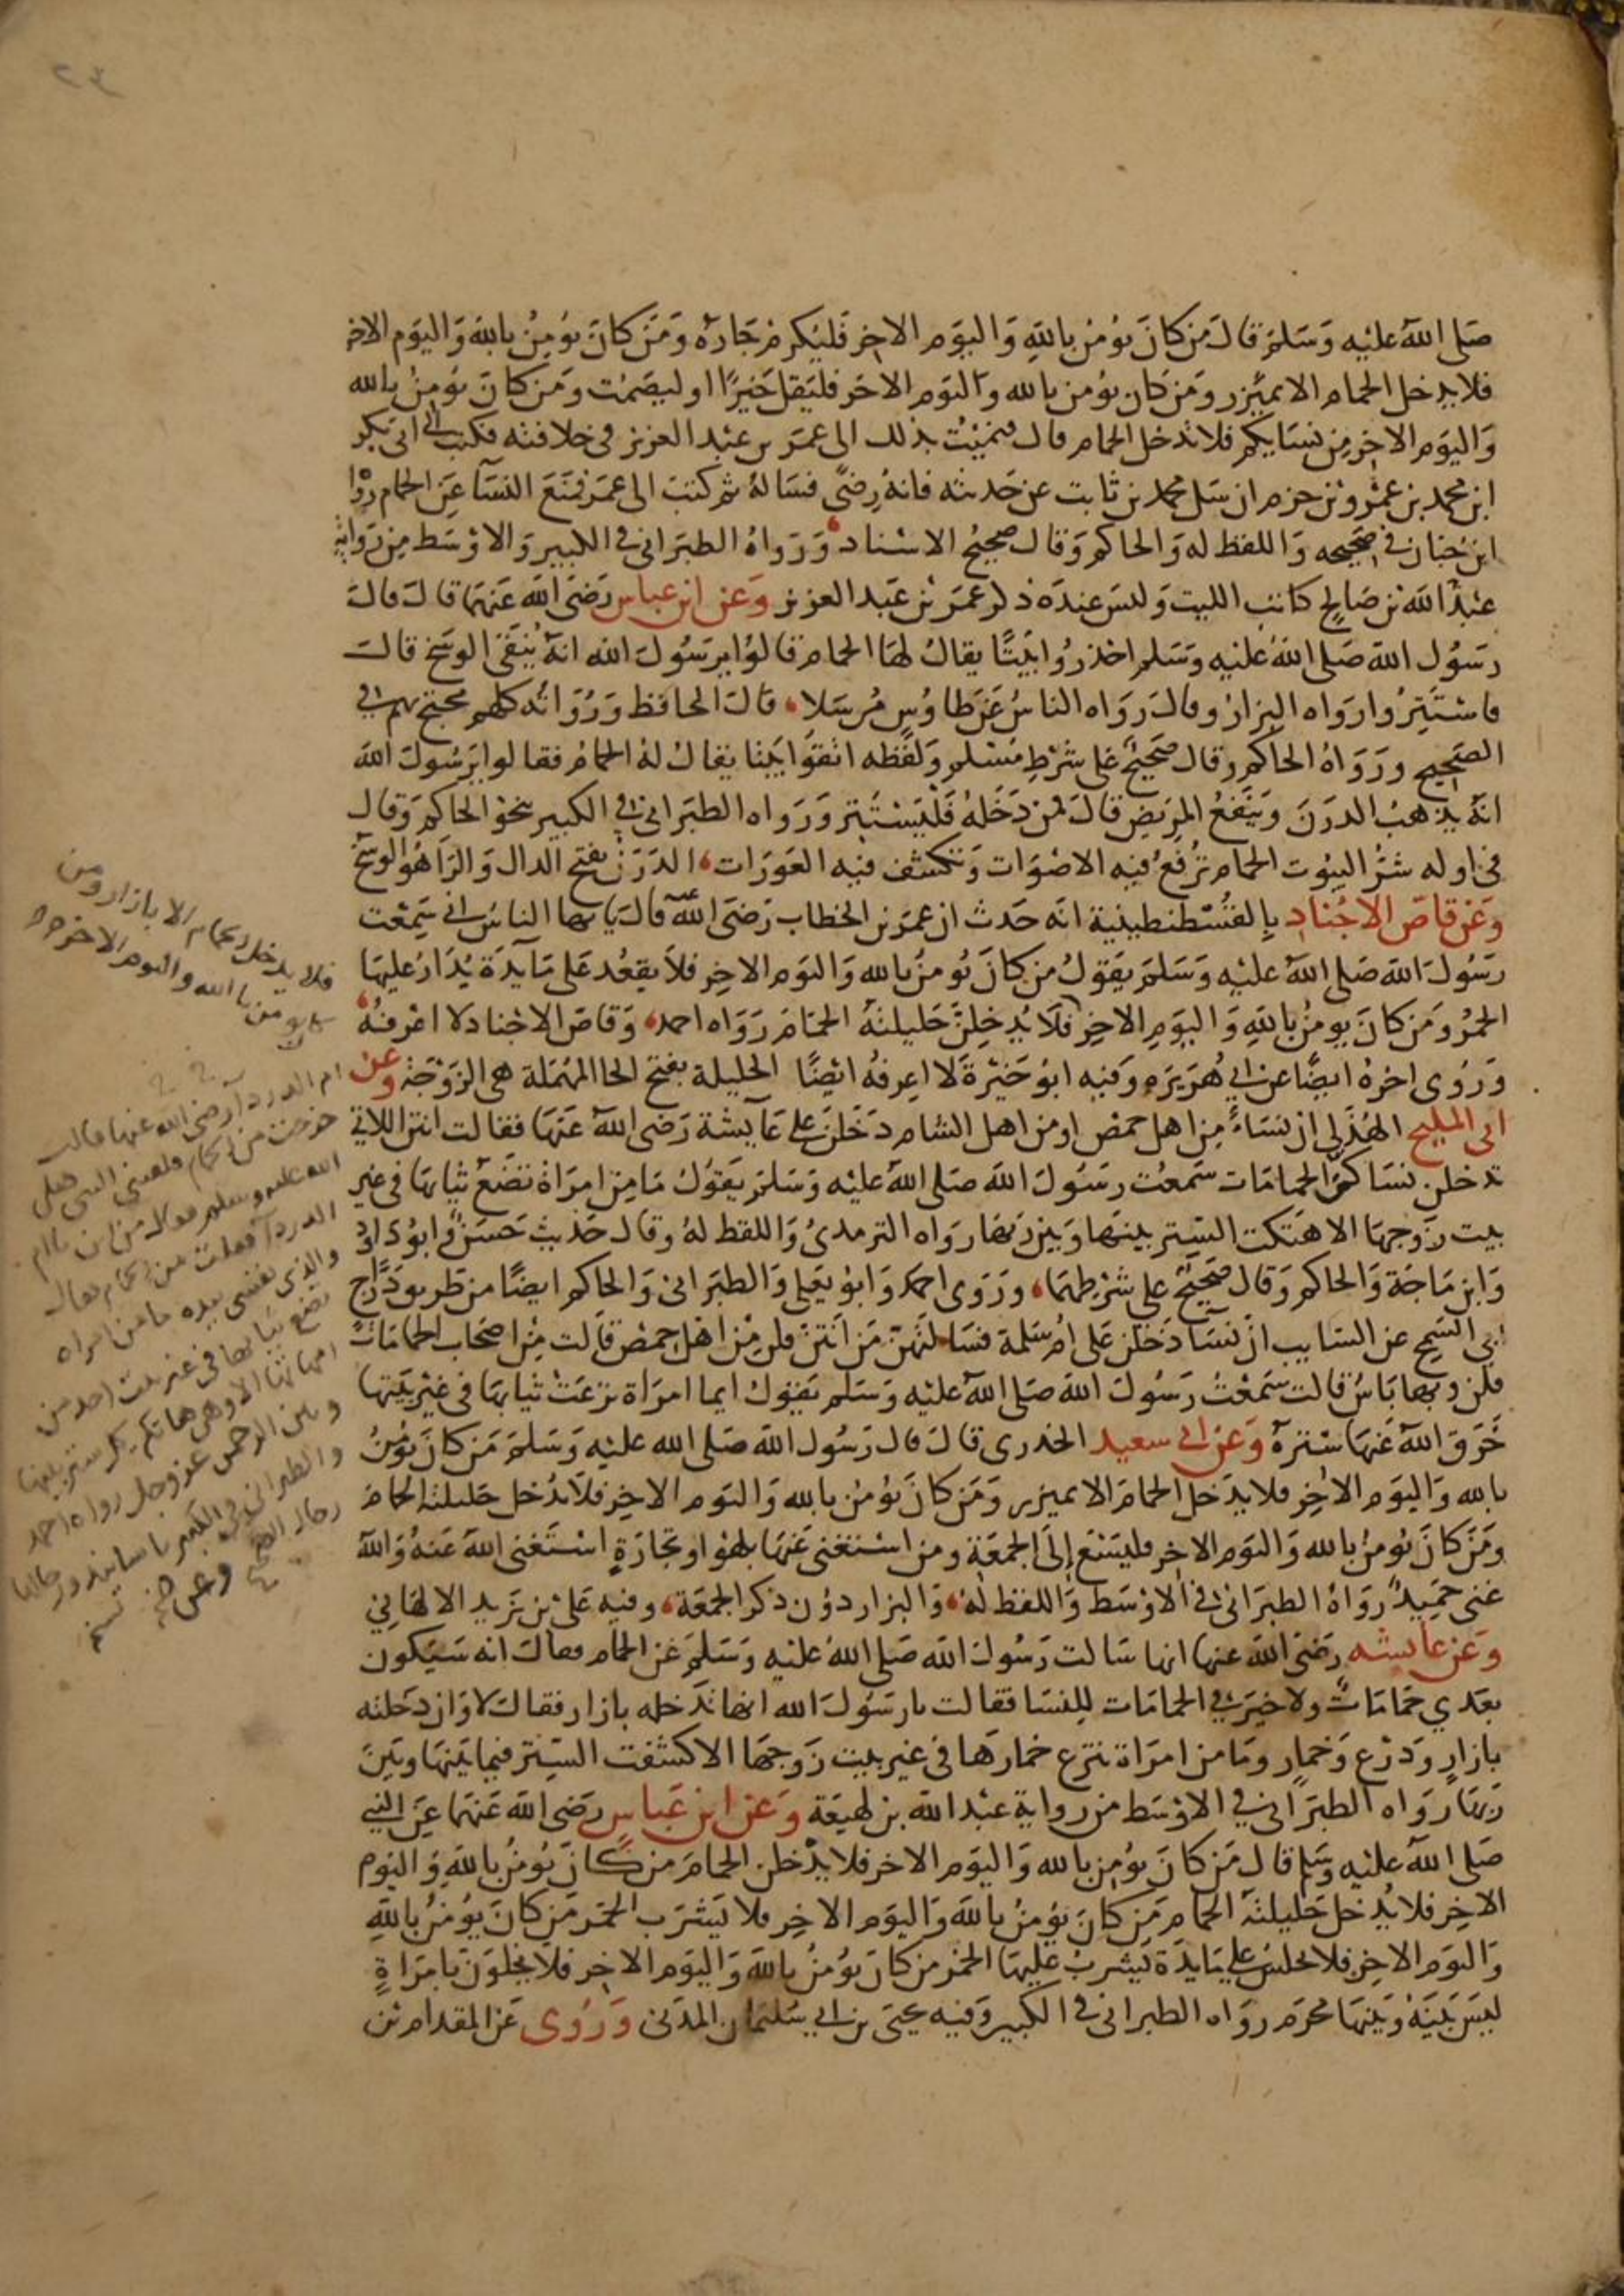 ٢٣
صَلى اللهُ عليْهِ وَسَلمَ قالَ مَن كانَ يؤمنُ بِاللهِ وَاليوَمِ الاخِر فَليُكرم جَارَهُ وَمَن كانَ يؤمِنُ باللهِ وَاليوَم الاخر
فلا يدخل الحمام الا بميزر ومَن كان يؤمن بالله واليَوم الاخر فليَقل خَيرًا او ليصَمُت وَمَن كانَ يؤمنُ بالله
وَاليوَم الاخِر مِن نسَايكم فلا تدخل الحمام قال فنميْتُ بذلك الى عمَر بن عبْد العزيز في خلافته فكتب الى ابى بكر
ابن محمد بن عمْرو بْن حزم ان سَل محمد بن ثابت عن حَديثه فانهُ رِضًى فسَالهُ ثم كتبَ الى عمَر فمنعَ النسَاَ عَن الحمام رَوَا
ابن حِبان في صَحِيحه وَاللفظ له وَالحاكم وَقال صحيحُ الاسْناد وَرَوَاهُ الطبَراني في الكبير وَالاوْسَط مِن رَوايَة
عبْد الله بن صَالح كاتب الليث وَليس عندَه ذكر عمَر بْن عَبد العزيز وَعَن ابن عباس رَضيَ الله عَنهمَا قالَ قالَ
رسَوُل الله صَلى اللهُ عَليْهِ وَسَلم احْذرُوا بَيتًا يقالُ لهَا الحمام قالوُا يرَسُولَ الله انهُ يُنَقى الوسَخ قالَ
فاسْتَتِرُوا رَوَاه البزارُ وقالَ رَوَاه الناسُ عَن طاوُسٍ مُرسَلا قالَ الحافظ وَرُوَاتُه كلهم محتج بهم في
الصَحيحِ ورَوَاهُ الحاكمِ وقال صَحيحٌ عَلى شرْطِ مسْلم وَلفظه اتقوا بَيْتا يقالُ لهُ الحَمامُ فقالوا يرَسُولَ الله
انهُ يذهبُ الدرَنَ وَينَفعُ المرَيضِ قالَ فمن دَخَلهُ فَلْيَسْتَتِر وَرَوَاه الطبَرَاني في الكبير بنحوْ الحاكم وَقالَ
في اوله شرُّ البيُوت الحمام ترُفعُ فيه الاصْوَات وَتكشف فيْه العَوَرَات الدَرَن بفتح الدال وَالرَا هُوَ الوسَخ
وَعَن قاصّ الاجْنادِ بِالقسْطنطينية انه حَدث ان عمَر بن الخطاب رَضيَ الله عنه قالَ يَايها الناسُ اني سَمِعْت
رسَوُلَ الله صَلى اللهُ عليْه وَسَلمَ يقوَلُ من كانَ يُومنُ بالله وَاليوَم الاخِرِ فلاَ يقعُد عَلى مَايَدَة يُدَارُ عَليهَا
الخمْرُ وَمَن كانَ يومنُ باللهِ وَ اليوَمِ الاخِرِ فلَا يُدخِلنَّ حَليلتَهُ الحمَامَ رَوَاه احمد وَقاصّ الاجْناد لا اعْرفُهُ
وَرُوِى اخِرهُ ايضًا عن ابي هُرَيرَة وَفيهِ ابوُ خَيْرَة لَا اعرِفهُ ايْضًا الحليلة بفتح الحاا لمهْمَلة هى الزوْجَة وعن
ابى المليح الهُذَلِي ان نسَاءً مِن اهل حمصَ او من اهل الشام دَخَلنَ على عَايشة رَضيَ اللهُ عَنهَا فقالت انتن اللاتي
تدخلن نسَاكم الحمامَات سَمعْت رسَوُلَ الله صَلى اللهُ عليْه وَسَلمَ يَقوُلُ مَا مِن امرَاةٍ تضَعُ ثيَابهَا في غير
بيت زَوجِهَا الا هَتكت السِّتر بينَهَا وَبَينَ رَبهَا رَوَاه الترمذىُ وَاللفظ لهُ وَقالَ حَديث حَسَنٌ وَابوُ دَاود
وَابن مَاجَة وَالحاكم وَقالَ صَحيحٌ على شرْطِهمَا ورَوَى احمد وَابوُ يعَلى وَالطبَرَاني وَالحاكم ايضًا من طريق درّاج
ابي السَمحِ عن السَّايب ان نسَاَ دَخَلن عَلى امُ سَلمة فسَالتهُنّ مَن انتن قلن مِن اهْل حمص قالت مِن اصْحَاب الحمامَات
قلن وبهَا بَاسٌ قالت سَمعْتُ رَسُولَ الله صَلى الله عليْه وَسَلم يقوُل ايما امرَاة نزَعَتْ ثيَابهَا في غَيْر بَيْتِهَا
خَرَقَ اللهُ عَنهَا سْترَهُ وَعَن ابي سعيد الخدرى قالَ قال رَسُول الله صَلى الله عليْه وَسَلمَ مَن كانَ يؤُمنُ
بالله وَاليوَم الاخِر فلا يدَخل الحمامَ الا بميزر وَمَن كانَ يؤُمنُ بالله وَاليوَم الاخِر فلاَ يُدْخل حَليلتهُ الحمام
ومَن كانَ يؤُمنُ بالله وَاليوَم الاخر فليَسْعَ إلَى الجمعَة ومن استغنى عَنهَا بلهْو او تجَارَةٍ استَغنى الله عَنهُ وَاللهُ
غنى حَميدٌ رَوَاهُ الطبَرَاني في الاوْسَط وَاللفظ لهُ وَالبزار دوُن ذكر الجمعَة وفيه عَلى بْن يَزيد الالهاني
وَعَن عايشه رَضيَ الله عنها انها سَالت رَسُولَ الله صَلى اللهُ عليْه وَسَلمَ عَن الحمام فقالَ انه سَيَكون
بعَدي حمَامَاتٌ ولا خيرَ في الحمامَات للنسَا فقالت يارسَوُلَ الله انها تدَخله بازار فقالَ لا وَان دَخلته
بازارٍ وَدرْعٍ وَخمارٍ ومَا من امرَاة تنزع خمارَهَا في غير بيت زَوجهَا الا كشفت السِتر فيما بَينهَا وَبَينَ
رَبهَا رَوَاه الطبَرَاني في الاوْسَط من رواية عبْد الله بن لهيعَة وَعَن ابن عَباسٍ رَضيَ الله عَنهَما عَن النبي
صَلى اللهُ عليْه وسَلم قال مَن كانَ يؤُمِن بالله وَاليوَم الاخر فلا يدْخلن الحمامَ من كانَ يؤُمنُ باللهِ وَاليوَم
الاخِر فلا يُدخل حَليلتهُ الحمام مَن كانَ يؤُمنُ باللهِ وَاليوَم الاخِر فلا يَشرَب الخمر مَن كانَ يؤُمنُ باللهِ
وَاليوَم الاخِر فلا يجلسُ على مَايدَة يُشربُ عَليهَا الخمر من كانَ يؤُمنُ باللهِ وَاليوَم الاخِر فلا يخلوَن بامرَاةٍ
ليسَ بَينَهُ وَبَينهَا محرَم روَاه الطبراني في الكبير وَفيه يحيَى بن ابي سُليمَان المدَني وَرُوِى عَن المقدام بن
فلا يدخل الحمام الا بازار ومن
يومن بالله واليوم الاخر
ام الدرداَ رضى الله عنها قالت
خرجت من الحمام فلقينى النبى صلى
الله عليه وسلم فقال من اين يا ام
الدردا فقلت من الحمام فقال
والذى نفسى بيده ما من امراه
تضع ثيابها في غير بيت احد من
امهاتها الا وهى هاتكه كل ستر بينها
وبين الرحمن عز وجل رواه احمد
والطبراني في الكبير باسانيد ورجالها
رجال الصحيح
وعن